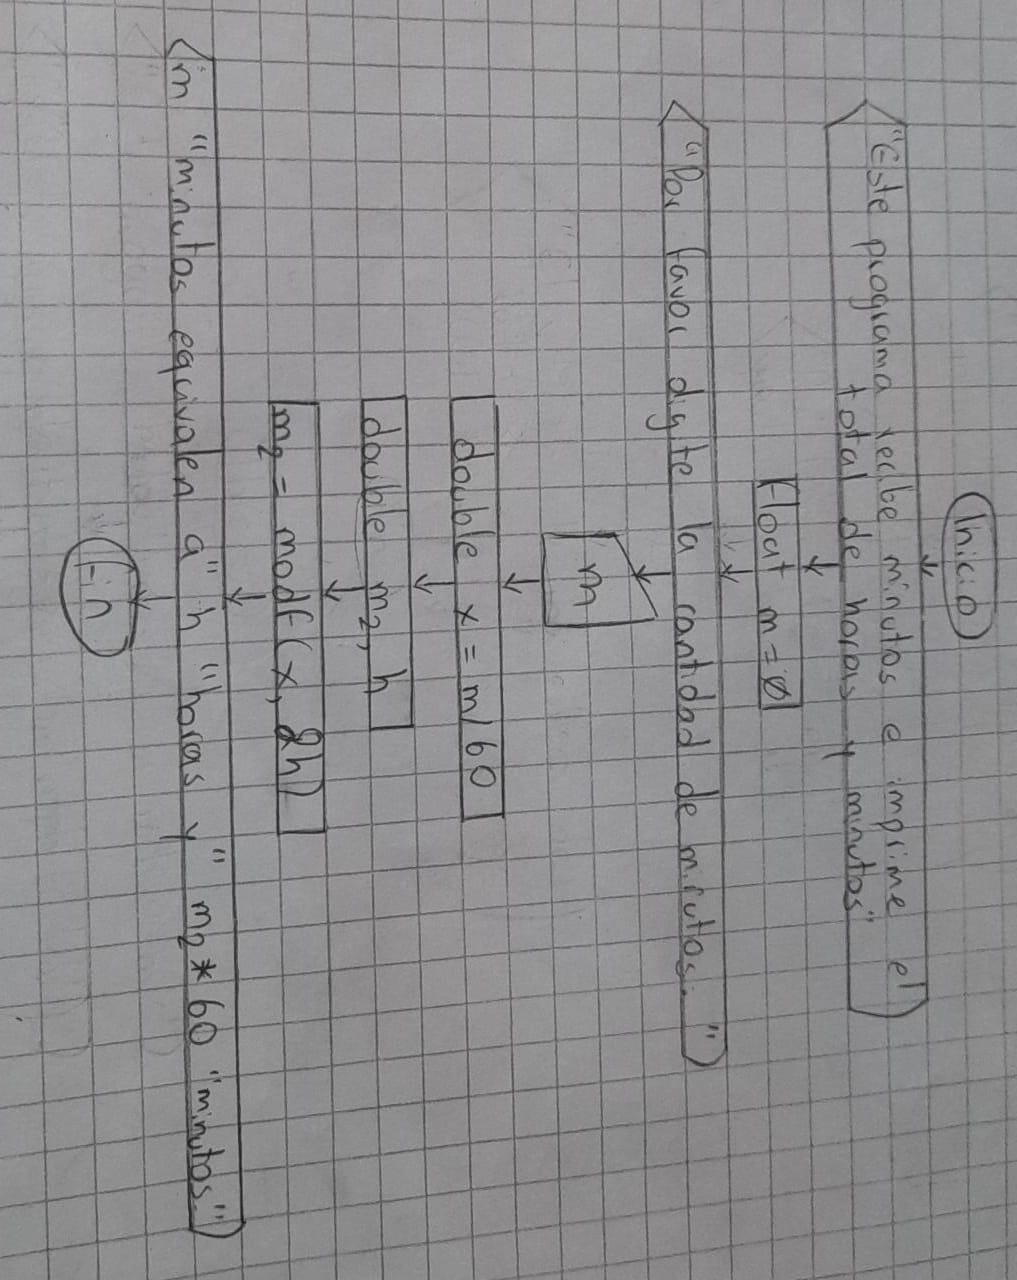 Inicio
"Este programa recibe minutos e imprime el
total de horas y minutos"
Float m = 0
"Por favor digite la cantidad de minutos: "
m
double x = m/60
double m2, h
m2 = modf(x, &h)
m "minutos equivalen a" h "horas y" m2 * 60 "minutos."
Fin